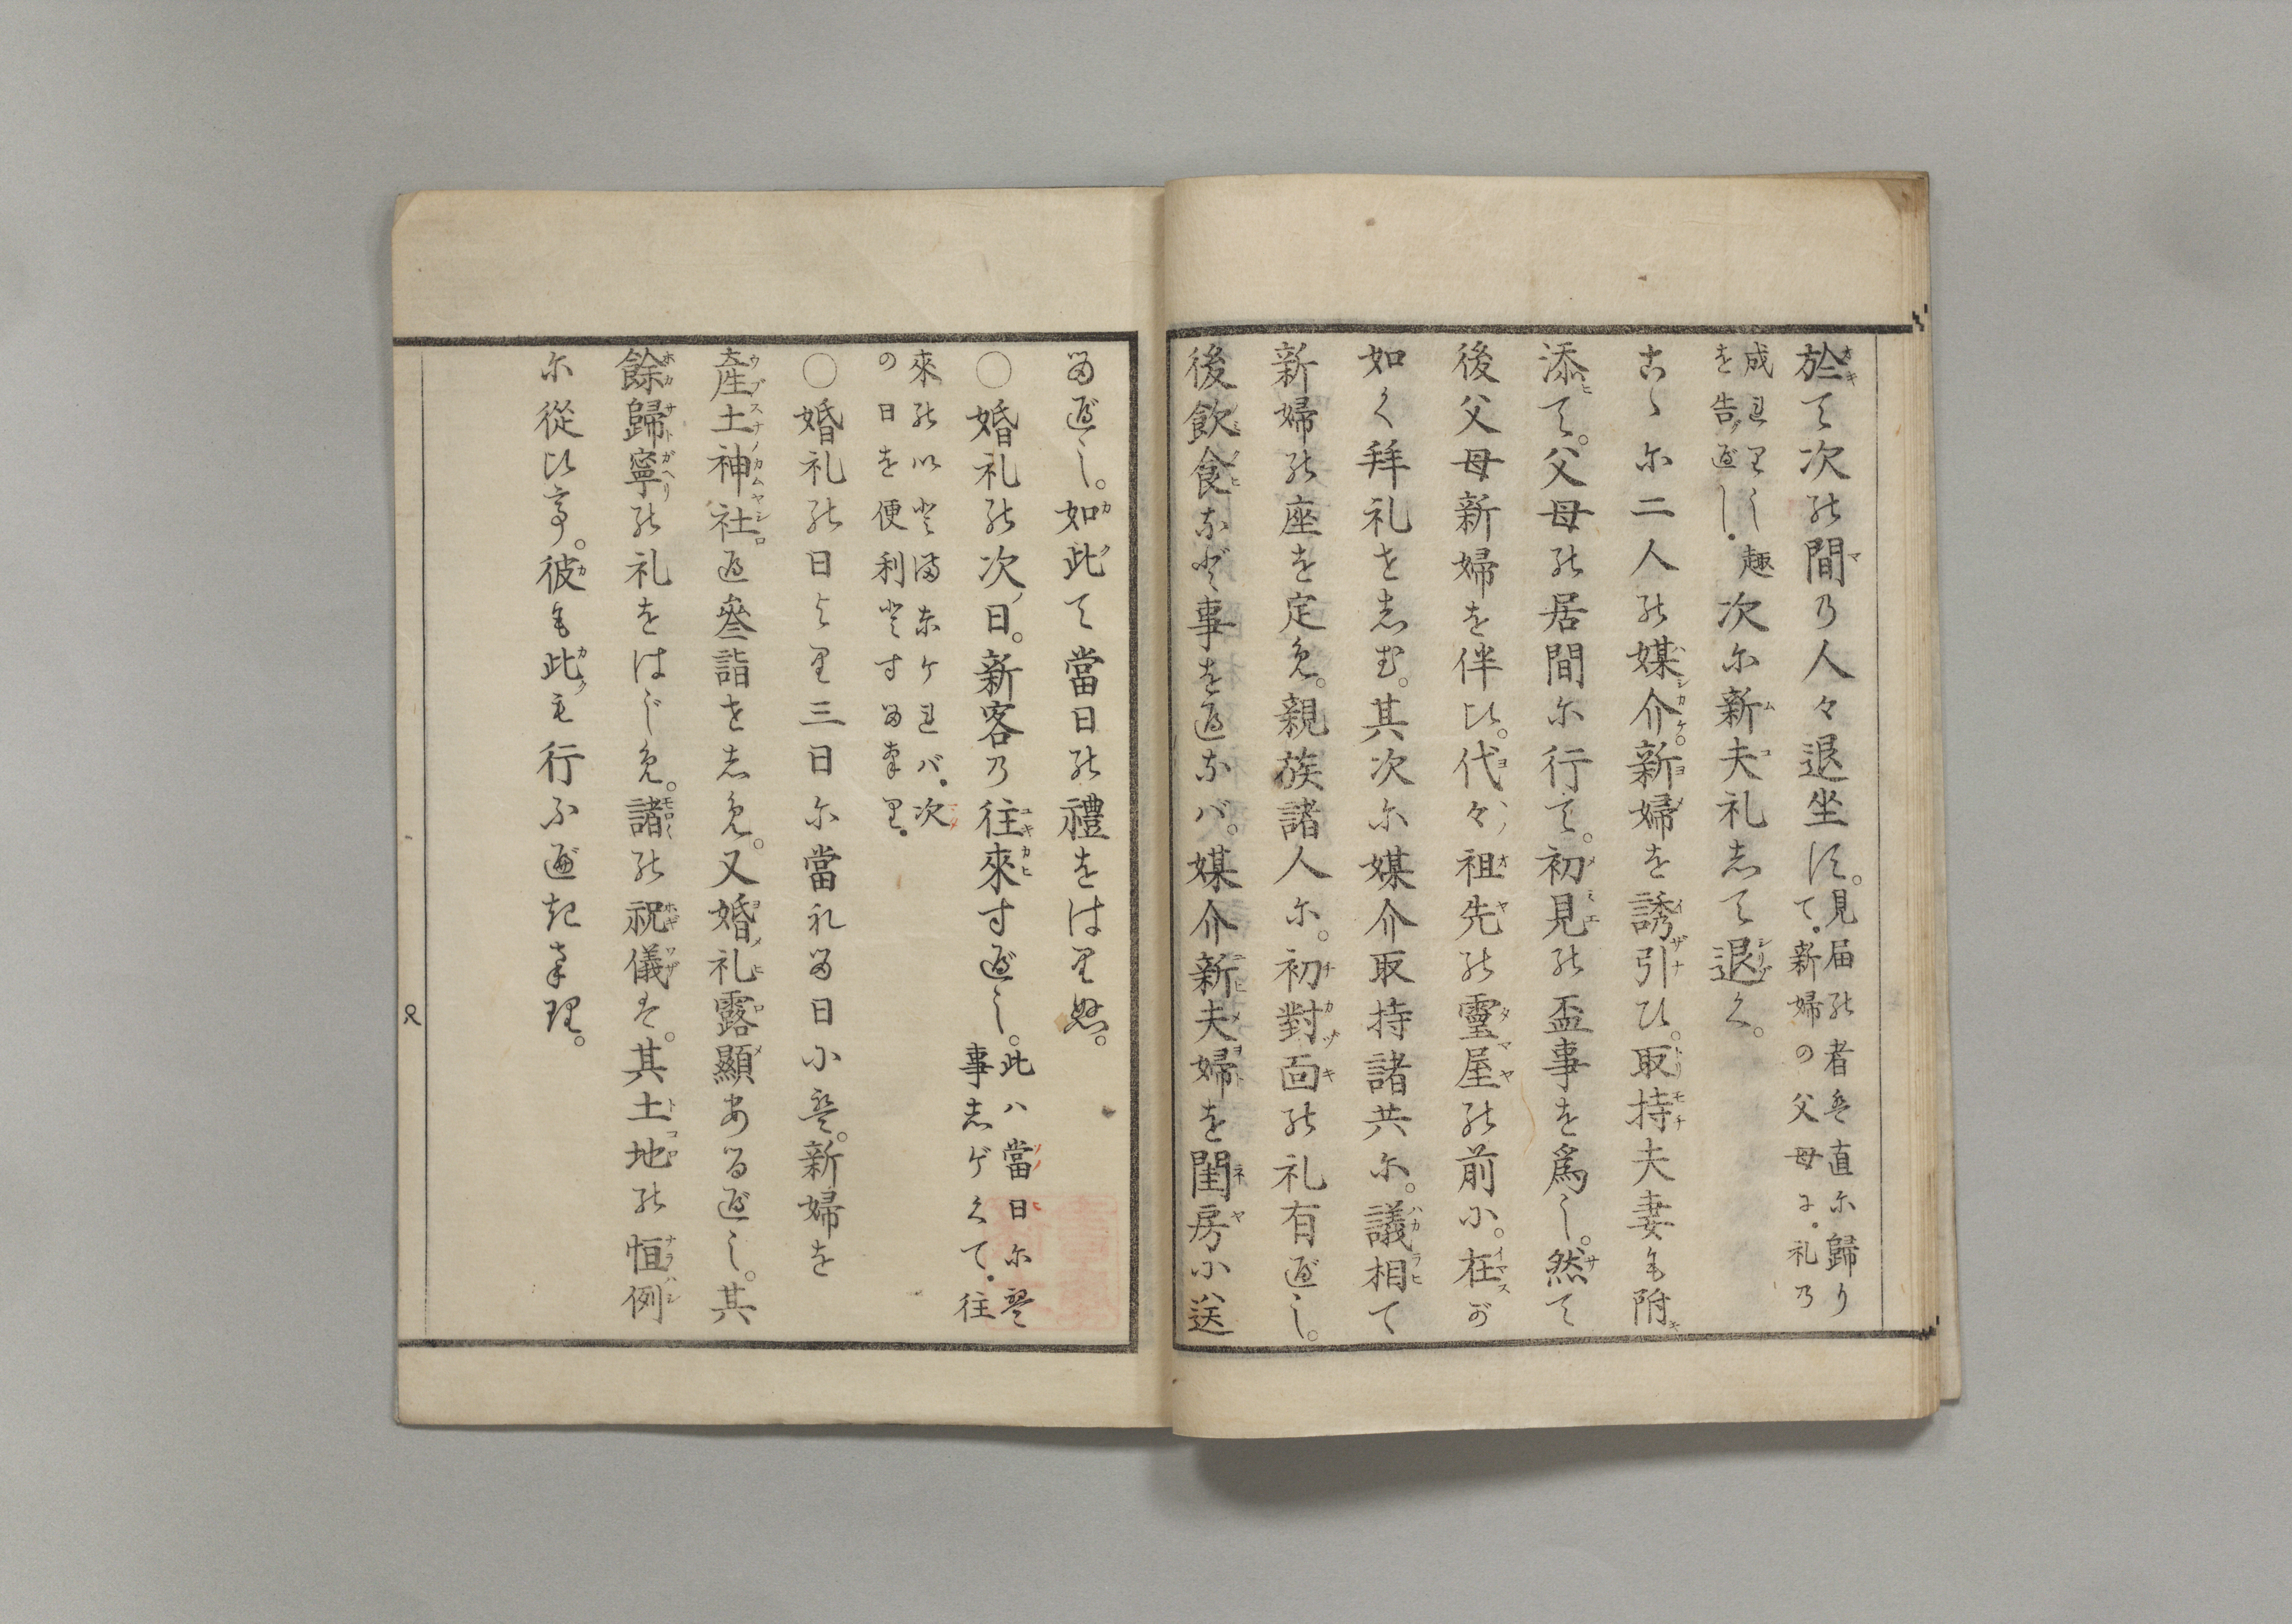 於て次の間乃人々退坐す。見届の者も直尓歸り
て。新婦の父母よ。礼乃
成れりし趣
を告べし。次尓新夫礼志て退く。
古ゝ尓二人の媒介。新婦を誘引ひ。取持夫妻も附
添て。父母の居間尓行て。初見の盃事を爲し。然て
後父母新婦を伴ひ。代々祖先の靈屋の前小。在が
如く拜礼を志む。其次尓媒介取持諸共尓。議相て
新婦の座を定免。親族諸人尓。初對面の礼有べし。
後飲食など事をへなバ。媒介新夫婦を閨房小送
るべし。如此て當日の禮をはりぬ。
○婚礼の次日。新客乃往來すべし。此ハ當日尓
事志げくて。往
來の
の日を便利とするなり。
○婚礼の日より三日尓當礼る日小。新婦を
產土神社へ參詣を志免。又婚礼露顯あるべし。其
餘歸寧の礼をはじ免。諸の祝儀も。其土地の恒例
尓從ひて。彼も此も行ふべきなり。